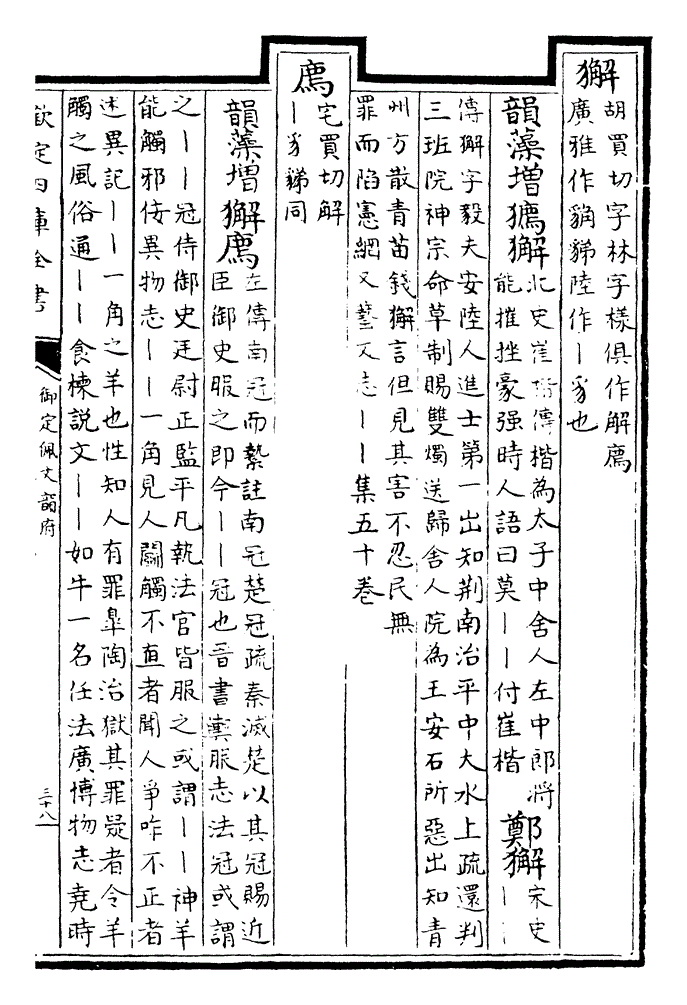 獬
胡買切字林字樣俱作解廌
廣雅作貈𧳋陸作丨豸也
韻藻增㺎獬
北史崔楷傳楷為太子中舍人左中郎將
能摧挫豪强時人語曰莫丨丨付崔楷
鄭獬
宋史丨丨
傳獬字毅夫安陸人進士第一出知荆南治平中大水上疏還判
三班院神宗命草制賜雙燭送歸舍人院為王安石所惡出知青
州方散青苗錢獬言但見其害不忍民無
罪而陷憲網又藝文志丨丨集五十卷
廌
宅買切解
丨豸𧳋同
韻藻增獬廌
左傳南冠而縶註南冠楚冠疏秦滅楚以其冠賜近
臣御史服之即今丨丨冠也晉書輿服志法冠或謂
之丨丨冠侍御史廷尉正監平凡執法官皆服之或謂丨丨神羊
能觸邪佞異物志丨丨一角見人鬭觸不直者聞人爭咋不正者
述異記丨丨一角之羊也性知人有罪臯陶治獄其罪疑者令羊
觸之風俗通丨丨食楝說文丨丨如牛一名任法廣博物志堯時
欽定四庫全書
御定佩文韻府
三十八